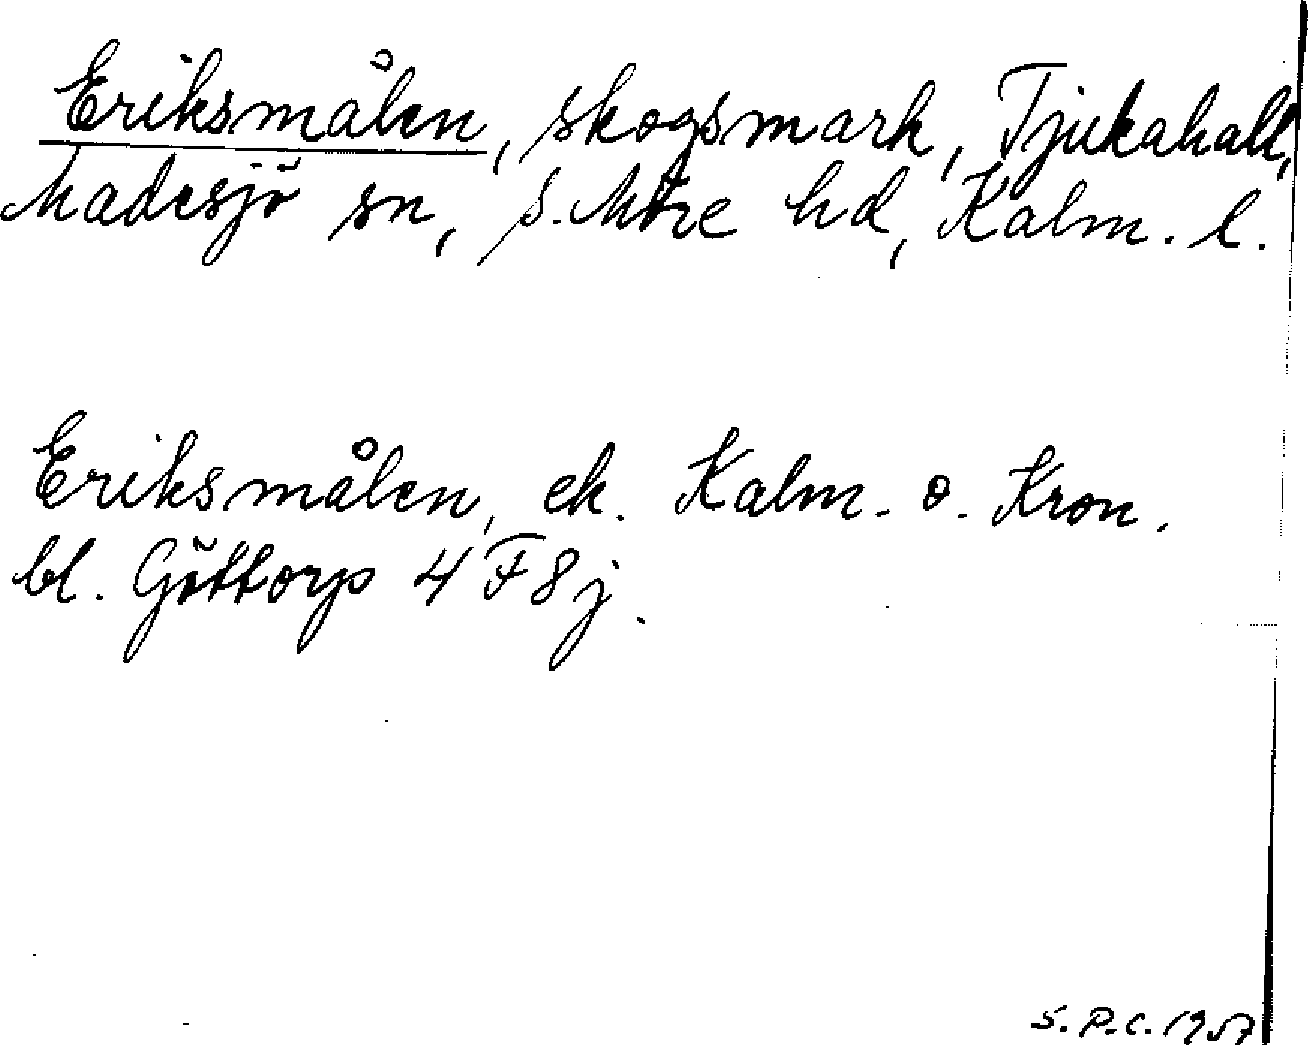 Eriksmålen, skogsmark, Tjukahall,
Madesjö sn, S. Möre hd, Kalm. l.
Eriksmålen, ek. Kalm. o. Kron.
bl. Göttorp 4 F 8 j.
S. P. C. 1957